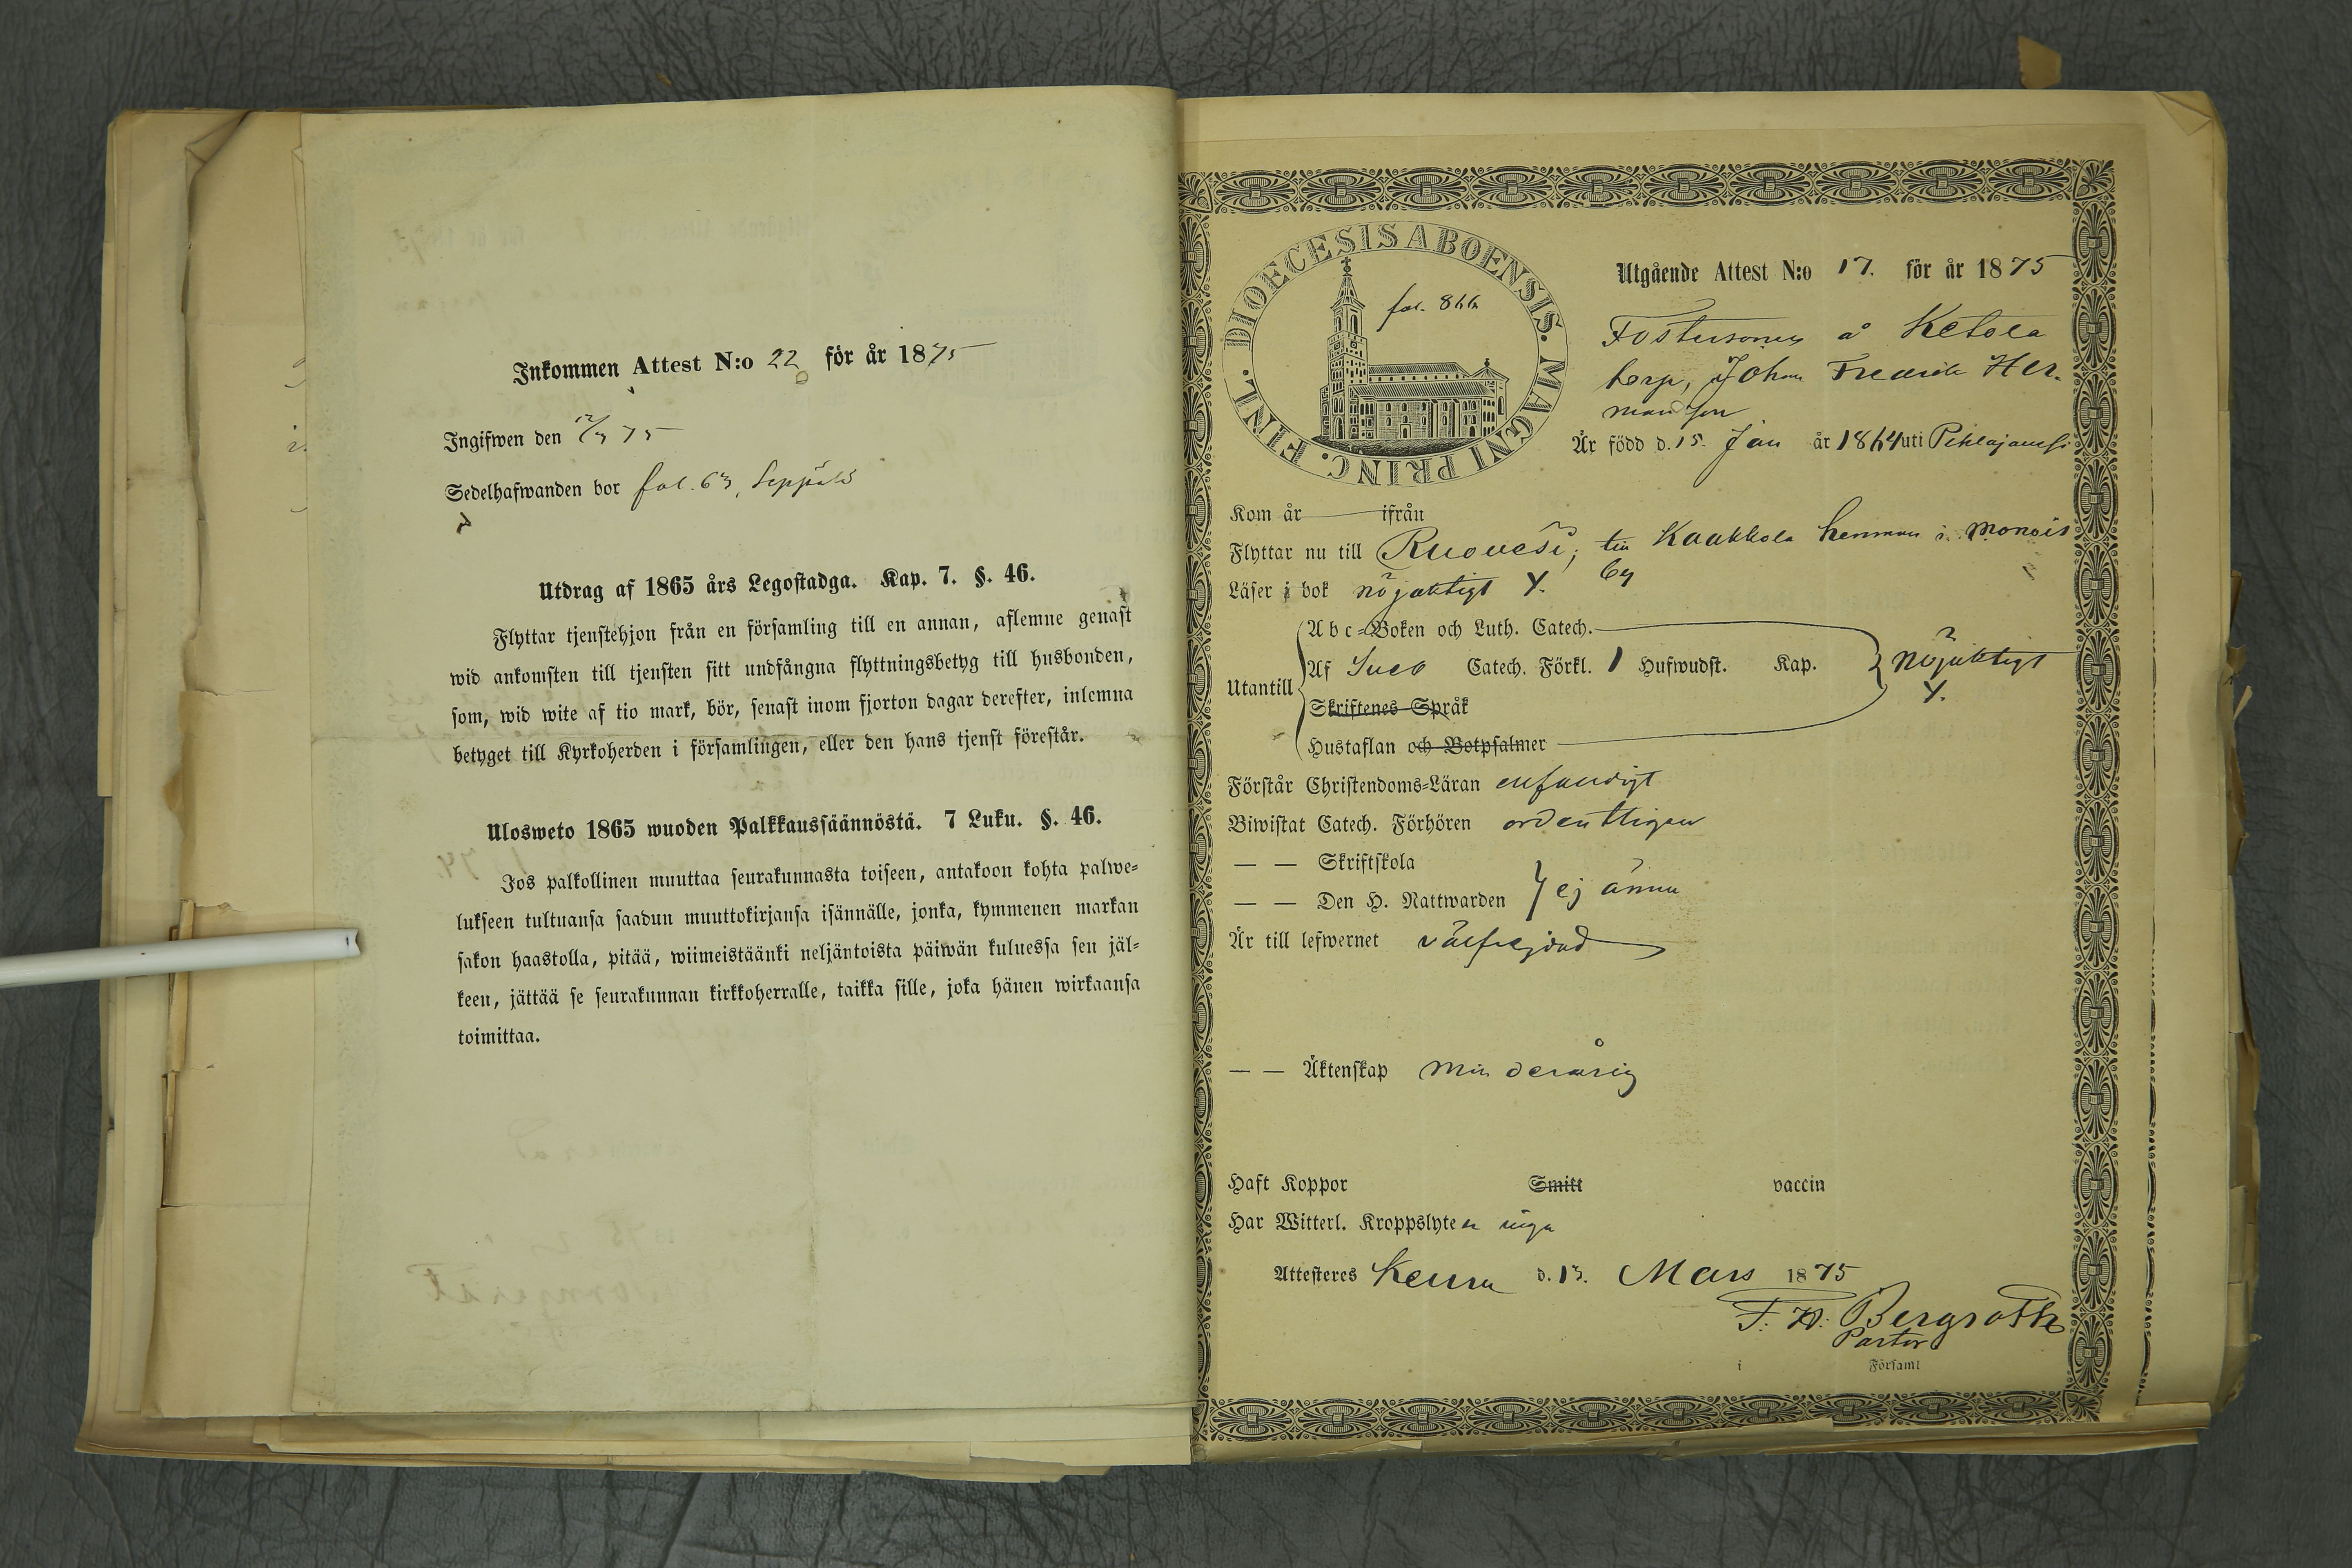 Inkommen Attest N:o 22 för år 1875
Ingifwen den 12/3 75
Sedelhafwanden bor fol. 63, Seppälä
Utdrag af 1865 års Legostadga. Kap. 7. §. 46.
Flyttar tjenstehjon från en församling till en annan, aflemne genast
wid ankomsten till tjensten sitt undfångna flyttningsbetyg till husbonden,
som, wid wite af tio mark, bör, senast inom fjorton dagar derefter, inlemna
betyget till Kyrkoherden i församlingen, eller den hans tjenst förestår.
Ulosweto 1865 wuoden Palkkaussäännöstä. 7 Luku. §. 46.
Jos palkollinen muuttaa seurakunnasta toiseen, antakoon kohta palwe-
lukseen tultuansa saadun muuttokirjansa isännälle, jonka, kymmenen markan
sakon haastolla, pitää, wiimeistäänki neljäntoista päiwän kuluessa sen jäl-
keen, jättää se seurakunnan kirkkoherralle, taikka sille, joka hänen wirkaansa
toimittaa.
DIOECESIS ABOENSIS. MAGNI PRINC. FINL.
fol. 866
Utgående Attest N:o 17. för år 1875
Fostersonen å Ketola
torp, Johan Fredrik Her-
mansson
Är född d. 15. Jan år 1864 uti Pihlajavesi
Kom år ifrån
Flyttar nu till Ruovesi, till Kaakkola hemman i Monois
by
Läser i bok nöjaktigt Y.
Abc-Boken och Luth. Catech.
Utantill Af Sveb Catech. Förkl. 1 Hufwudst. Kap. nöjaktigt
Y.
Skriftenes Språk
Hustaflan och Botpsalmer
Förstår Christendoms-Läran enfaldigt
Biwistat Catech. Förhören ordentligen
— — Skriftskola
— — Den H. Nattwarden ej ännu
Är till lefwernet välfrejdad
— — Äktenskap minderårig
Haft Koppor Smitt vaccin
Har Witterl. Kroppslyten inga
Attesteres Keuru d. 13. Mars 1875
F. W. Bergroth
Pastor
i Församl